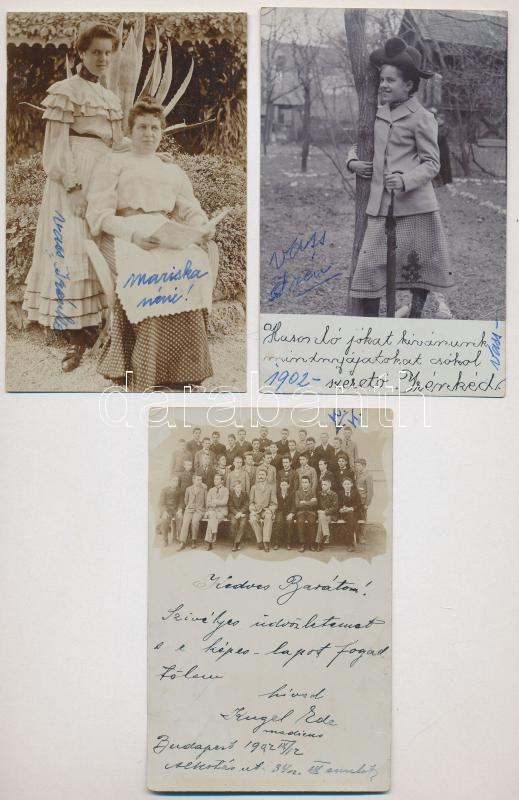 Vass Irénke
Mariska
néni!
Vass
Irén
Hasonló jókat kivánunk
mindnyájatokat csókol
1902- szerető Irénkéd.
Vass-
darabanth
Kedves Barátom!
Szivélyes üdvözletemet
s e képes-lapot fogad
tőlem
hived
Engel Ede
medicus
Budapest 1902 IV/12
Alkotás ut.